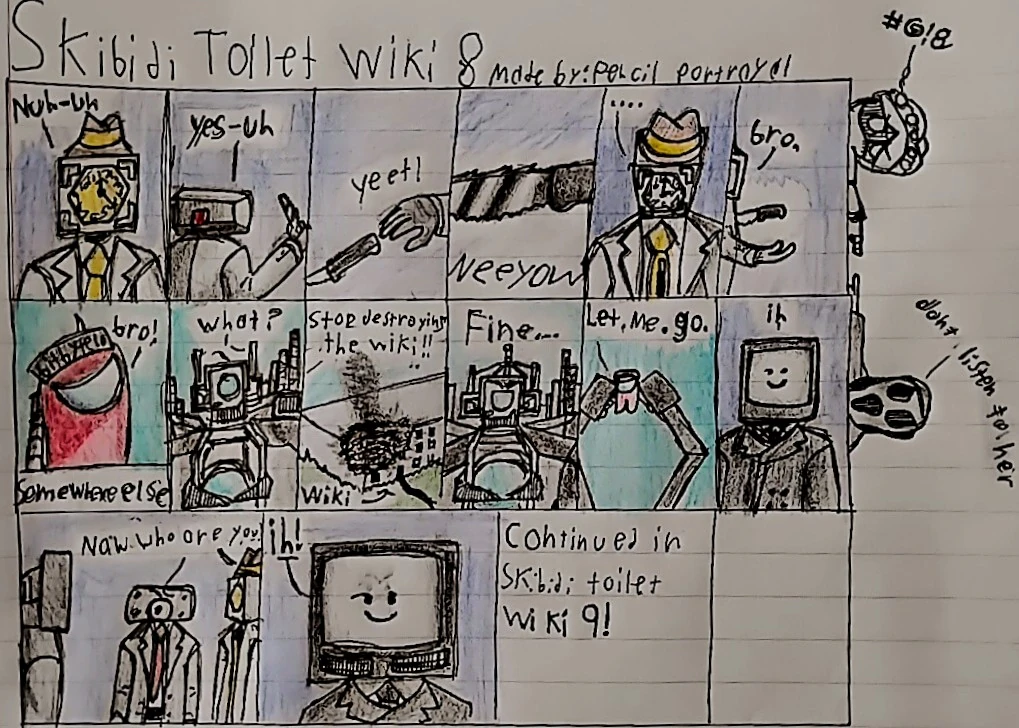 Skibidi Toilet Wiki 8 made by: Pencil portrayal
#@!&
Nuh-uh
yes-uh
yeet!
Neeyow
....
bro.
bro!
Somewhere else
what?
Stop destroying
the wiki!!
Wiki
Fine...
Let. Me. go.
ih
don't listen to her
Naw. who are you.
ih!
Continued in
Skibidi toilet
Wiki 9!